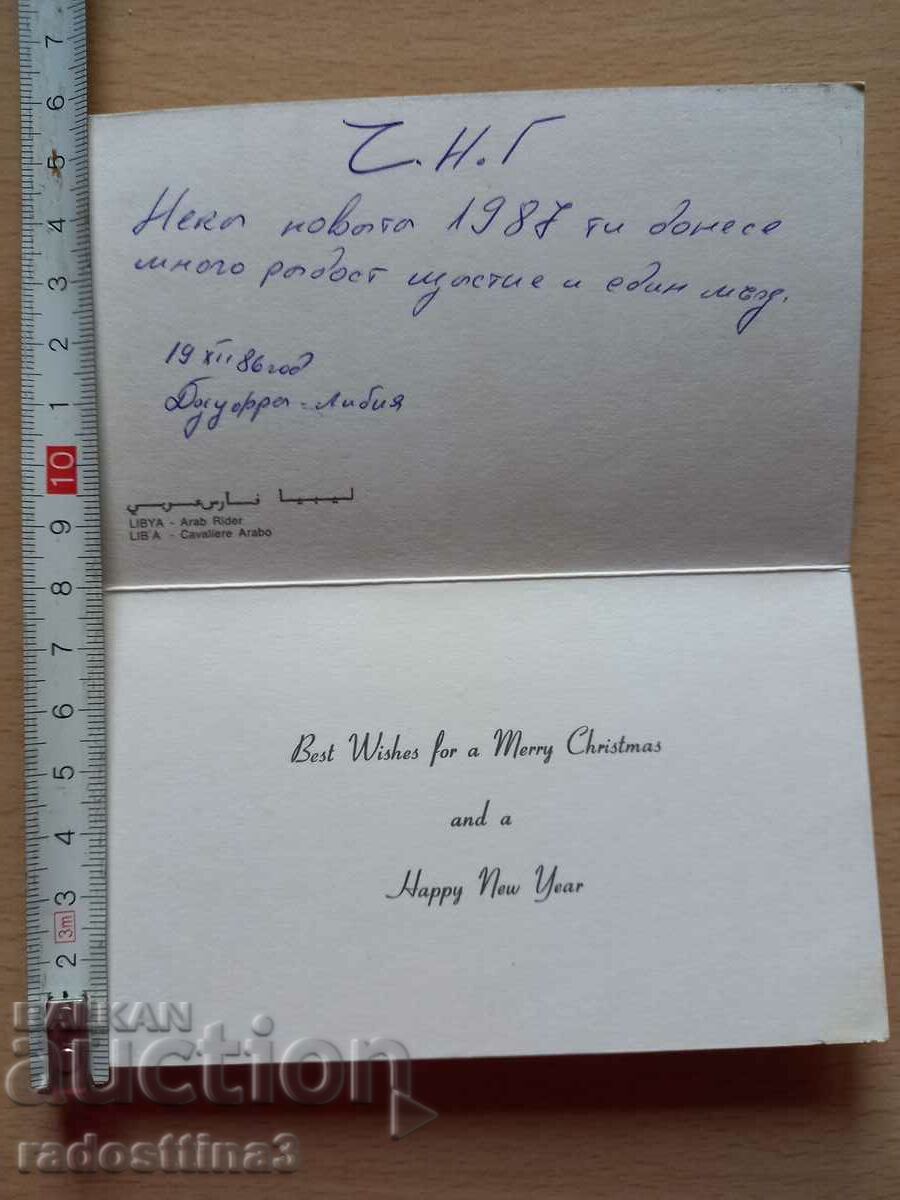 Ч.Н.Г
Нека новата 1987 ти донесе
много радост щастие и един мъж.
19 XII 86 год
Либия
ليبيا فارس عربي
LIBYA - Arab Rider
LIB'A - Cavaliere Arabo
Best Wishes for a Merry Christmas
and a
Happy New Year
7
6
5
4
3
2
1
10
9
8
7
6
5
4
3
3m
2
BALKAN
auction
radosttina3